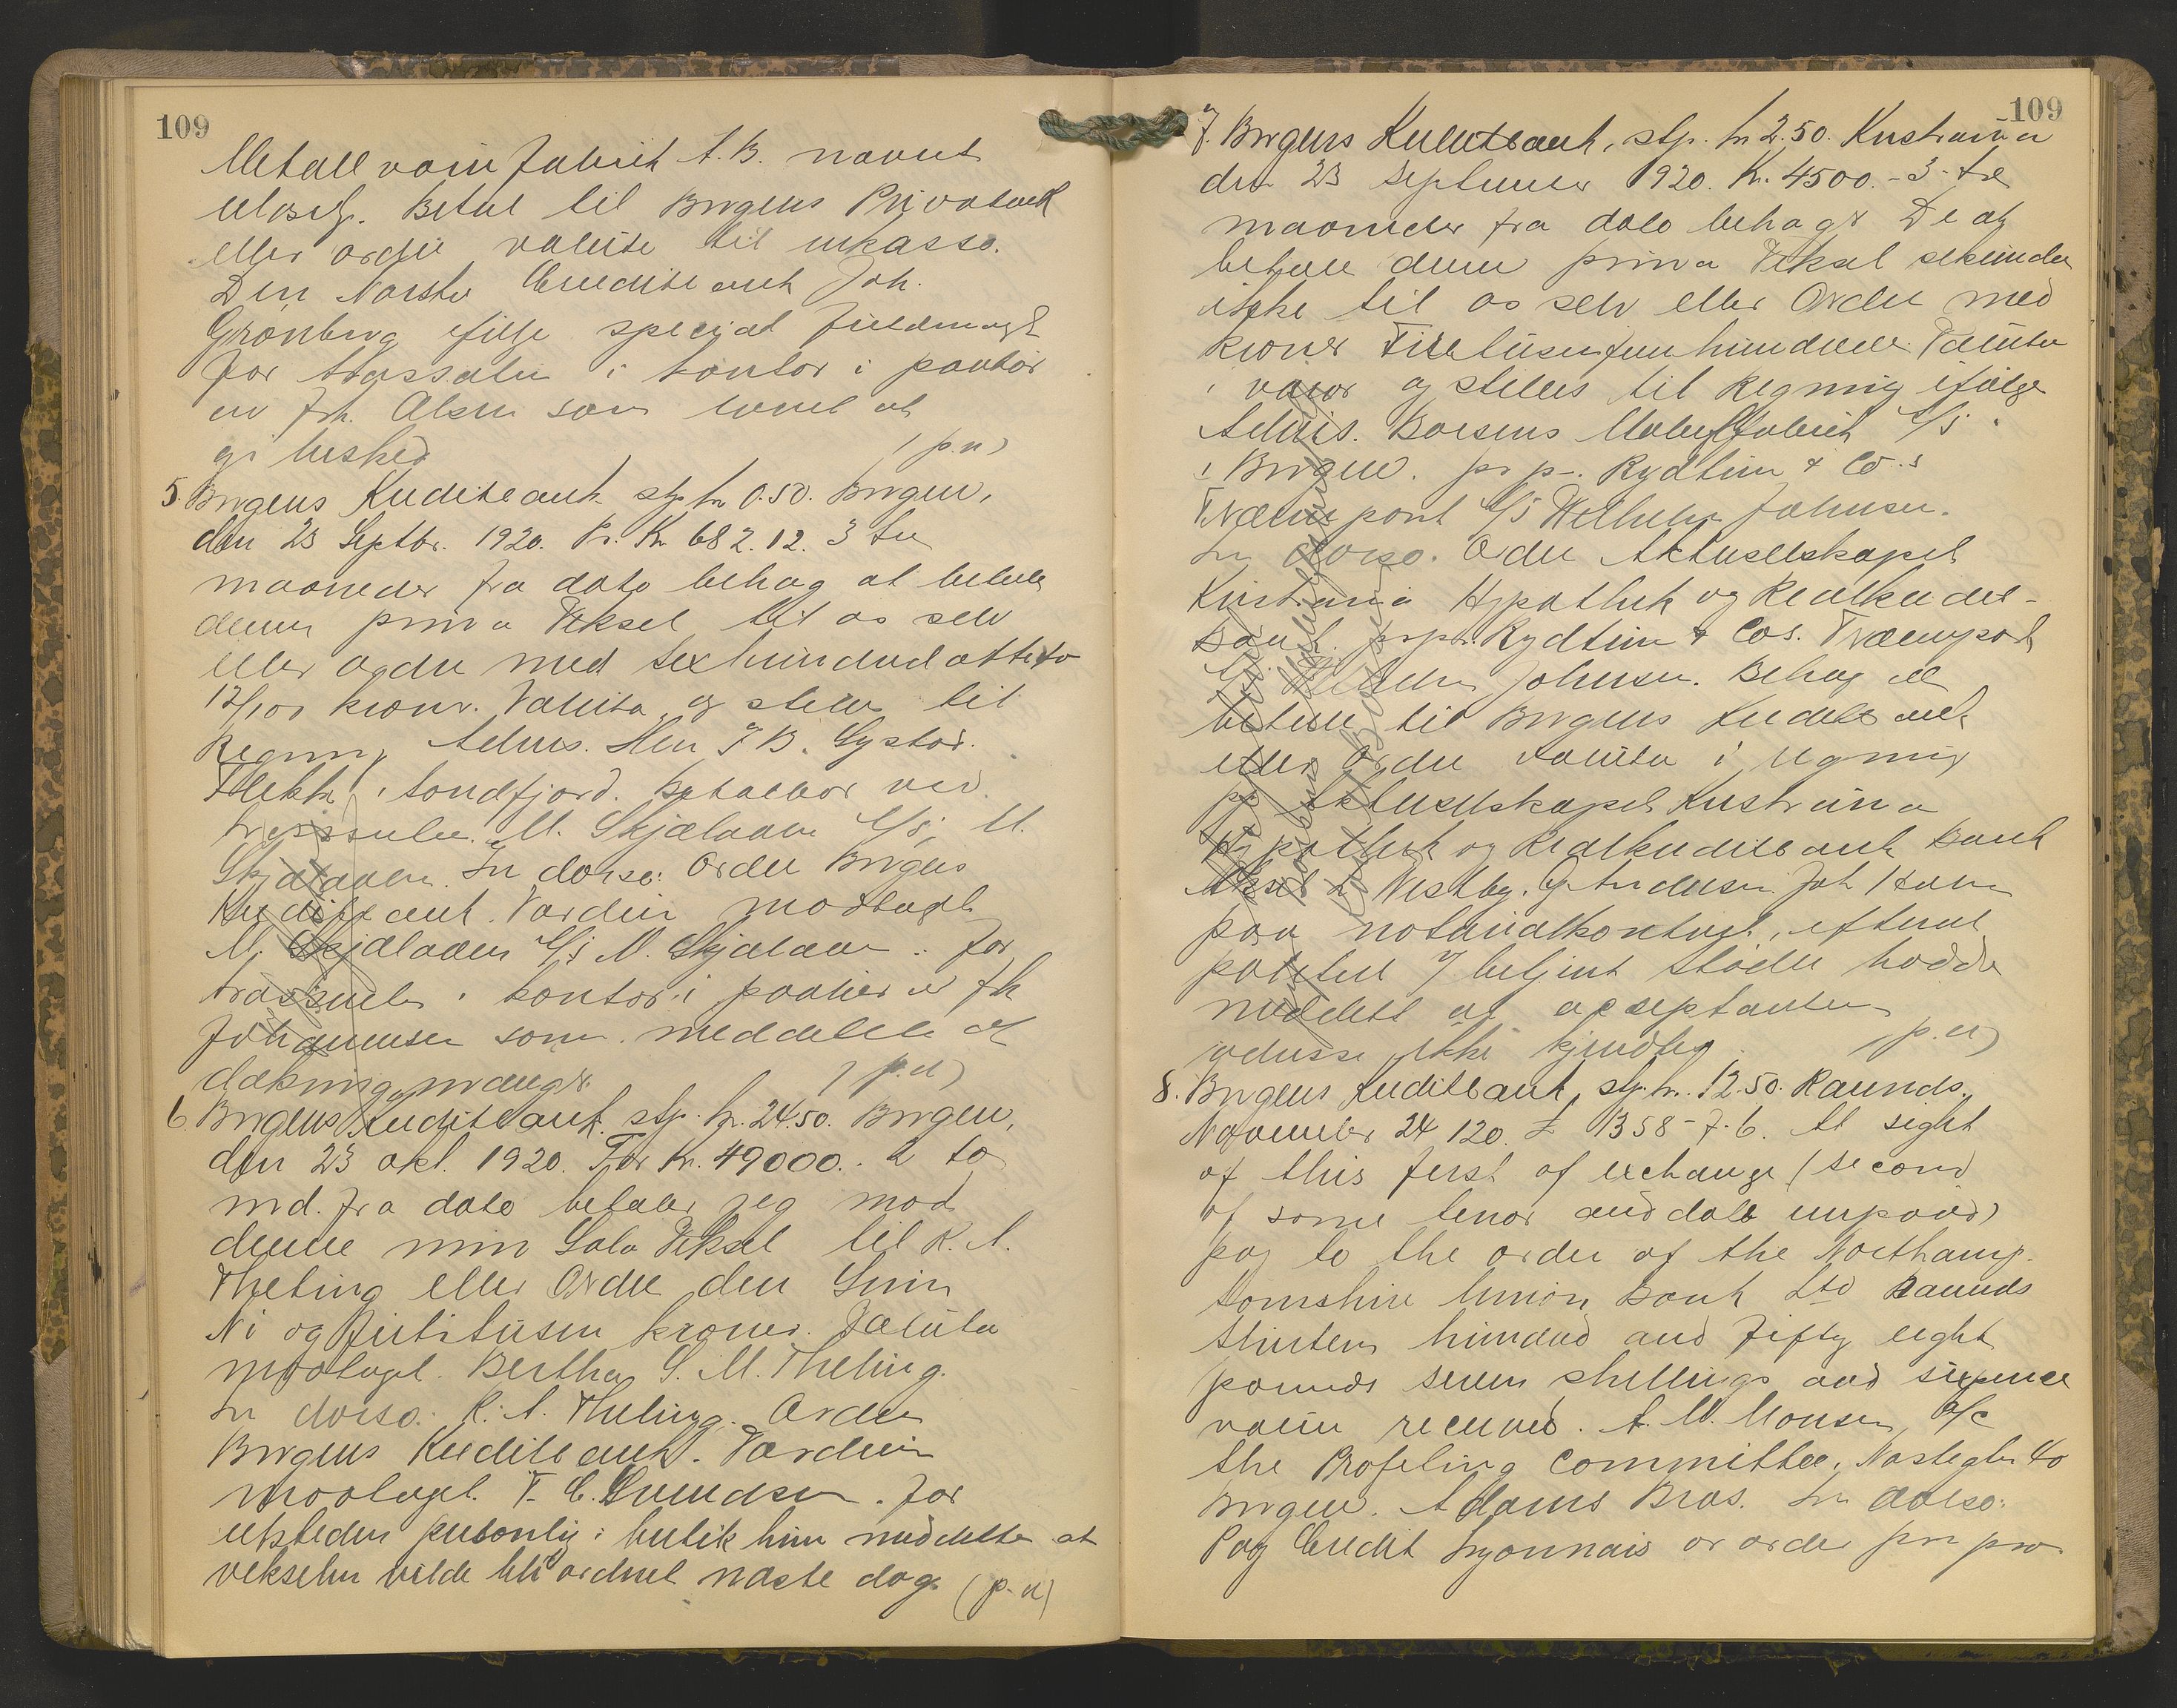 109
Metallvarefabrik A.B. navnet
ulæselg. Betal til Bergens Privatbank
eller ordre valuta til inkasso.
Den Norske Creditbank Joh.
Grönberg ifølge special fuldmagt
For trassaten i kontor i paahør
av frk. Olsen som lovet at
gi besked (p.n)
5. Bergens Kreditbank stp. kr 0.50. Bergen,
den 23 Septbr. 1920. Pr. Kr 682.12. 3 tre
maaneder fra dato behag at betale
denne prima Veksel til os selv
eller ordre med Sexhundredottito
12/100 kroner. Valuta og stilles til
Regning Adres. Herr J B.
i Sondfjord. Betalbar ved
trassenten. M. Skjælaaen A/S, M.
Skjælaaen. In dorso: Ordre Bergens
Kreditbank. Værdien modtaget
M. Skjælaaen A/S M. Skjælaaen. For
trassenten i kontor i paahør av frk
Johannensen som meddelte at
dækning mangler. (p.n)
6. Bergens Kreditbank. stp. kr. 24.50. Bergen,
den 23 okt. 1920. For Kr. 49000.- 2 to
md. fra dato betaler jeg mod
denne min Sola Veksel til R. A.
Theting eller Ordre den Sum
Ni og firtitusen kroner. Valuta
modtaget. Bertha S. M. Theting.
In dorso: R. A. Theting. Ordre
Bergens Kreditbank. Værdien
modtaget. F. C. Svendsen. For
utstederen personlig i butik hun meddelte at
vekselen vilde bli ordnet næste dag. (p.n)
109
7. Bergens Kreditbank, stp. kr 2.50. Kristiania
den 23 September 1920. Kr. 4500.- 3 - tre
maaneder fra dato behager De at
betale denne prima Veksel sekunda
ikke til os selv eller Ordre med
kroner Firetusenfemhundrede. Valuta
i varer og stilles til Regning ifølge
Advis. Boesens Møbelfabrik A/S
i Bergen. pr pr. Rydtun & Co.s
Træimport A/S Wilhelm Johnsen.
In dorso. Ordre Aktieselskapet
Kristiania Hypothek og Realkredit-
bank. pr pr. Rydtun & Cos. Træimport
A/S Wilhelm Johnsen. Behag at
betale til Bergens Kreditbank
eller Ordre valuta i regning
pr Aktieselskapet Kristiania
Hypothek og Realkreditbank Bank
Aksel Vestby. G. Andersen. Joh
paa notarialkontoret, efterat
politiet betjent Støder hadde
meddelt at acceptantens
adresse ikke kjendtes (p.n)
8. Bergens Kreditbank, stp. kr. 12.50. Raunds,
November 24 120. £ 1358-7-6. At sight
of this first of exchange (second
of same tenor and date unpaid)
pay to the order of the Northamp-
tonshire Union Bank Ltd Raunds
thirteen hundred and fifty eight
pounds seven shillings and sixpence
value received. A. M. Monsen, a/c
the Committee, 40
Bergen. Adams Bros. In dorso:
Pay Credit Lyonnais or order per pro